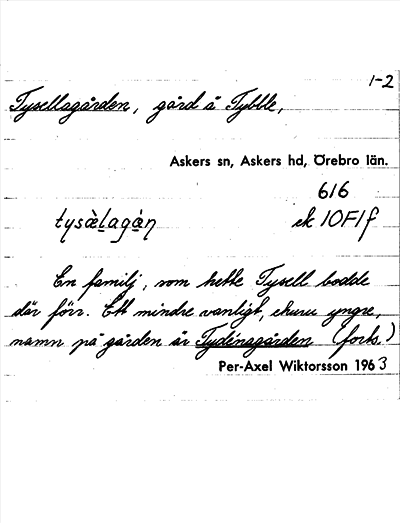 1-2
Tysellsgården, gård å Tybble,
Askers sn, Askers hd, Örebro län.
616
tysæ̀lagàṇ ek 10F1f
En familj, som hette Tysell bodde
där förr. Ett mindre vanligt, ehuru yngre,
namn på gården är Tydénsgården (forts.)
Per-Axel Wiktorsson 1963